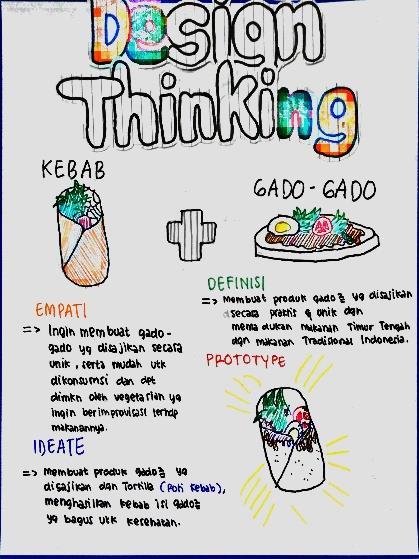 Design
Thinking
KEBAB
GADO-GADO
EMPATI
=> Ingin membuat gado-
gado yg disajikan secara
unik, serta mudah utk
dikonsumsi dan dpt
dimkn oleh vegetarian yg
ingin berimprovisasi terhdp
makanannya.
DEFINISI
=> Membuat produk gado2 yg disajikan
secara praktis & unik dgn
memadukan makanan Timur Tengah
dgn makanan Tradisional Indonesia.
IDEATE
=> Membuat produk gado2 yg
disajikan dgn Tortilla (Roti kebab),
menghasilkan kebab isi gado2
yg bagus utk kesehatan.
PROTOTYPE